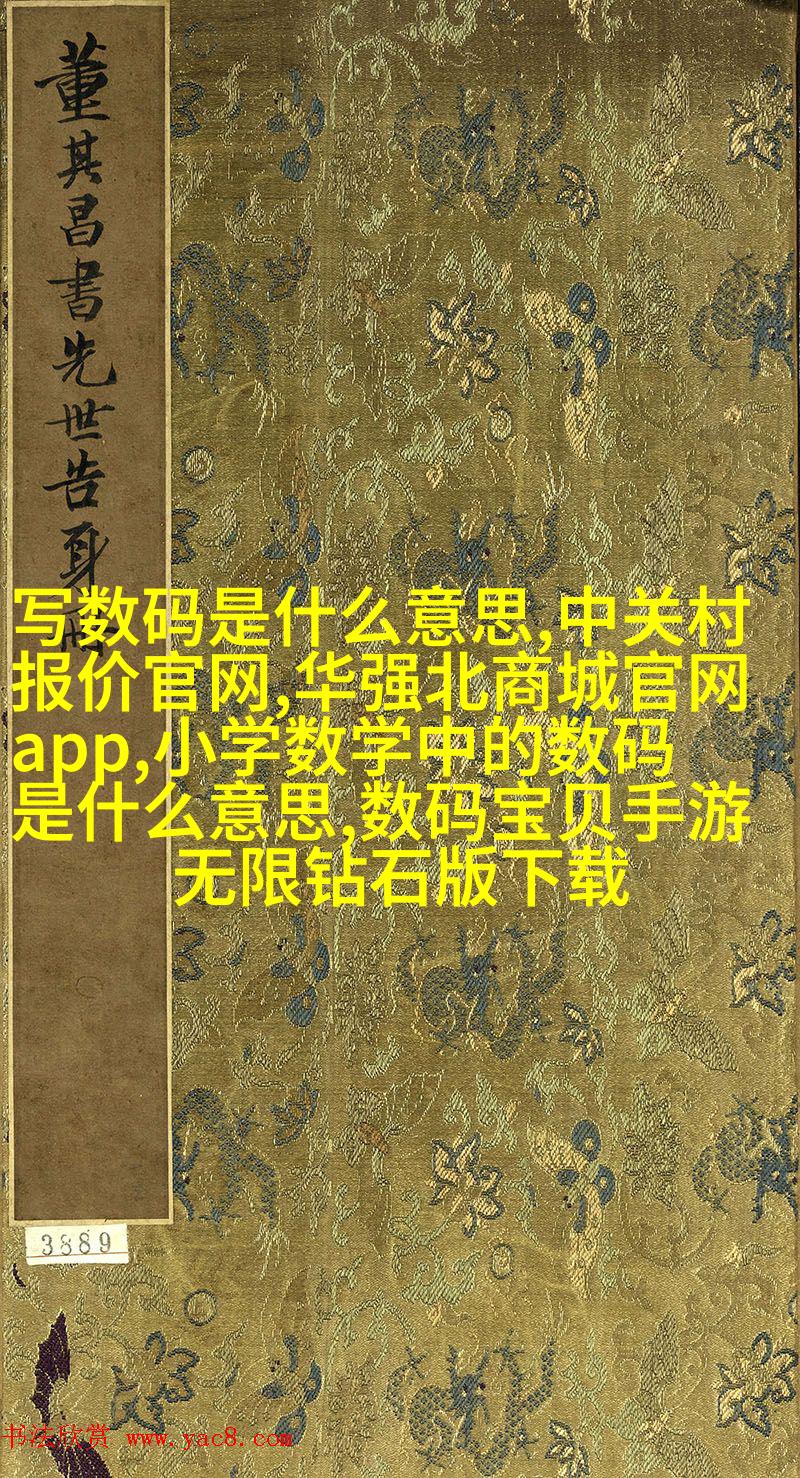 董其昌書先世告身冊
写数码是什么意思,中关村
报价官网,华强北商城官网
app,小学数学中的数码
是什么意思,数码宝贝手游
无限钻石版下载
3889
书法欣赏 www.yac8.com